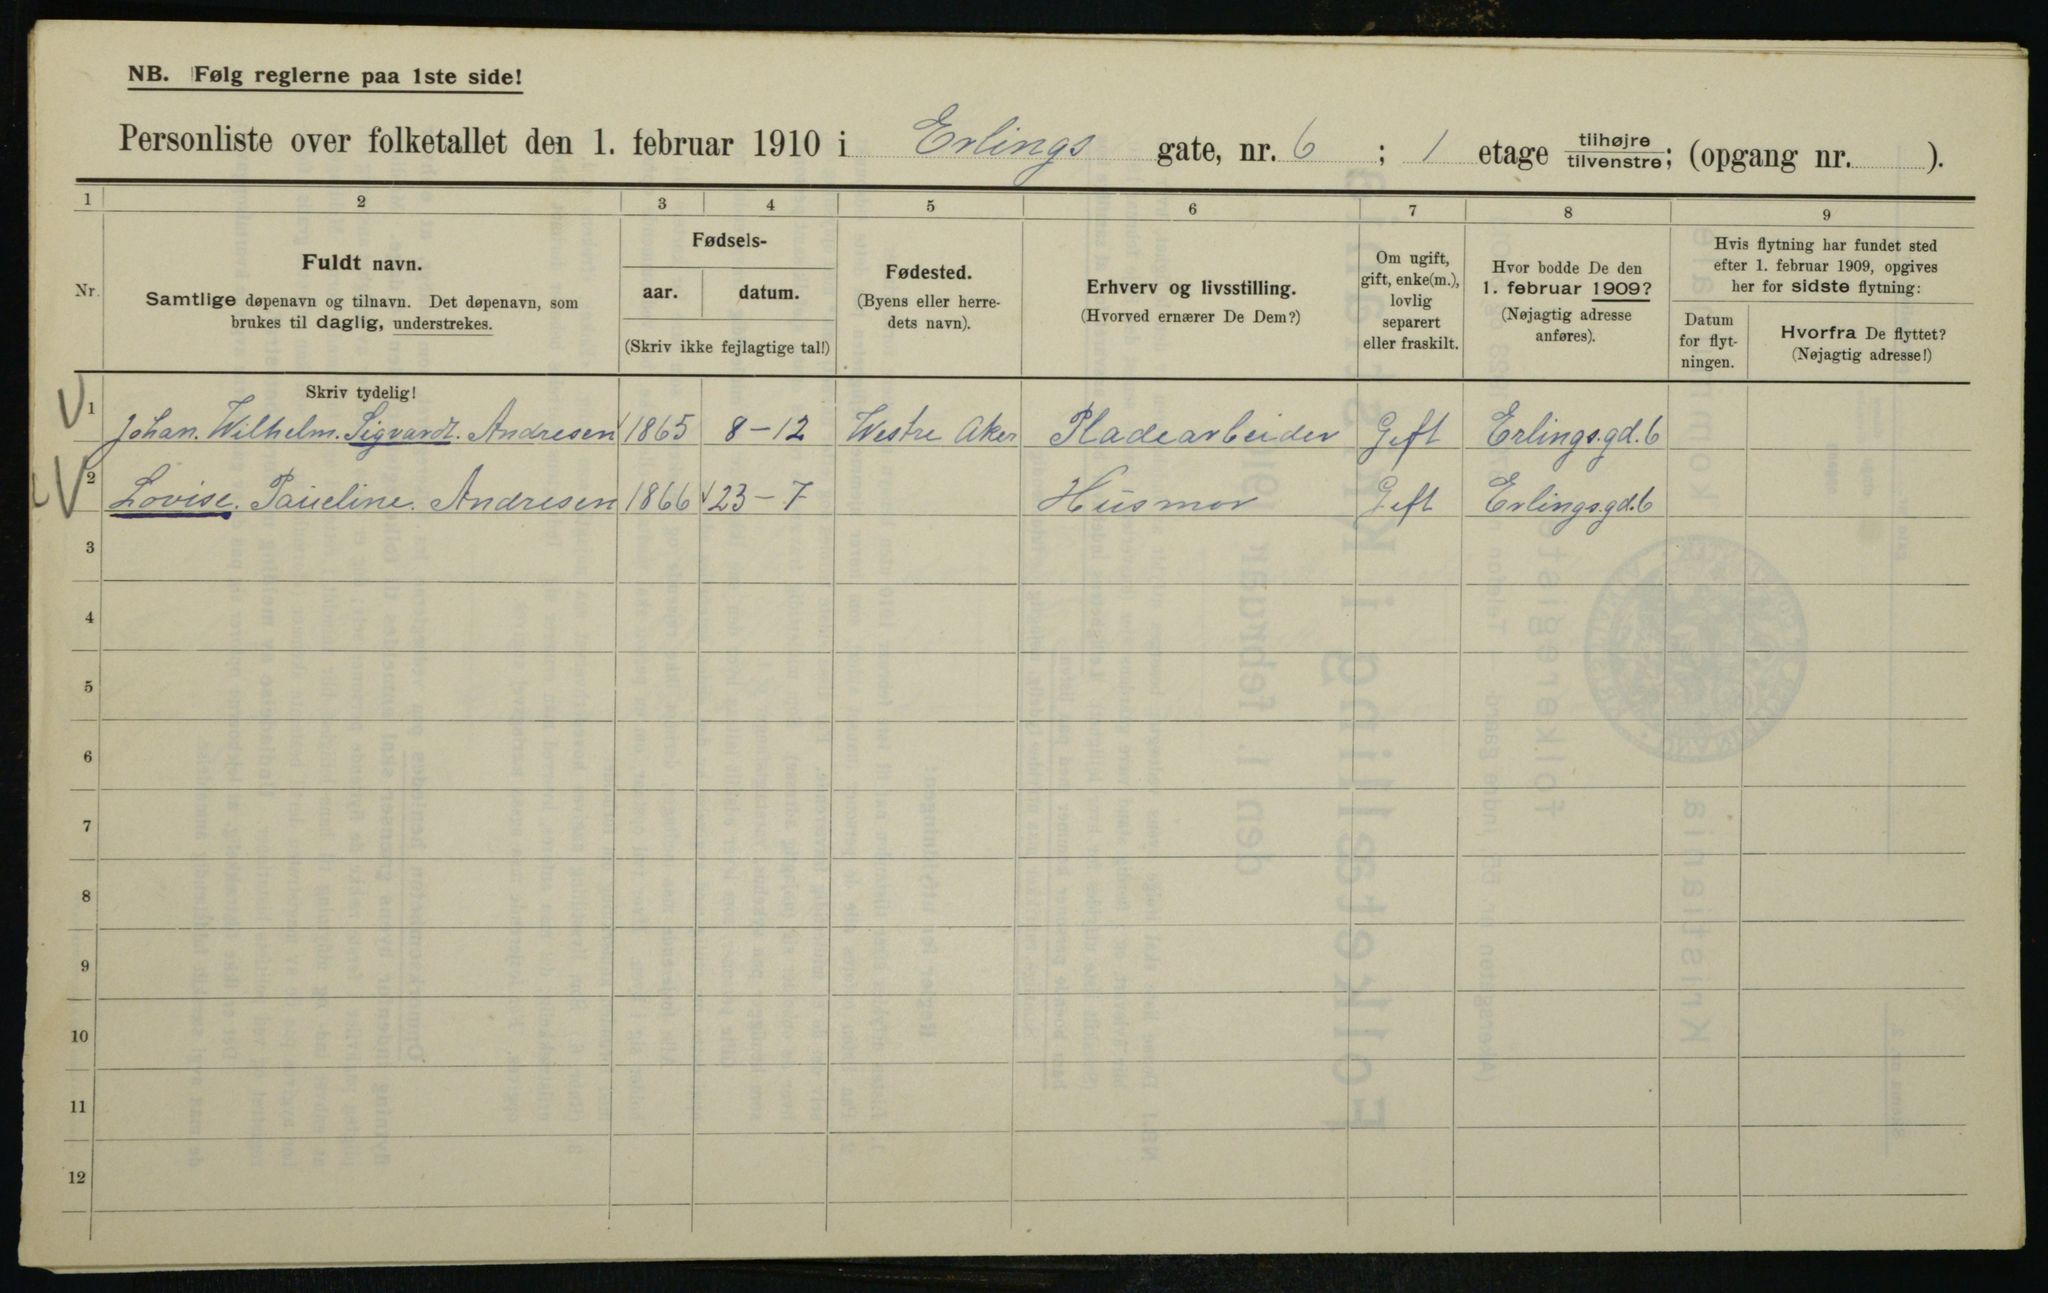 NB. Følg reglerne paa 1ste side!
Personliste over folketallet den 1. februar 1910 i Erlings gate, nr. 6 ; 1 etage tilhøjre/tilvenstre; (opgang nr. ).
1 2 3 4 5 6 7 8 9
Nr.
Fuldt navn.
Samtlige døpenavn og tilnavn. Det døpenavn, som
brukes til daglig, understrekes.
Fødsels-
aar. datum.
(Skriv ikke fejlagtige tal!)
Fødested.
(Byens eller herre-
dets navn).
Erhverv og livsstilling.
(Hvorved ernærer De Dem?)
Om ugift,
gift, enke(m.),
lovlig
separert
eller fraskilt.
Hvor bodde De den
1. februar 1909?
(Nøjagtig adresse
anføres).
Hvis flytning har fundet sted
efter 1. februar 1909, opgives
her for sidste flytning:
Datum
for flyt-
ningen.
Hvorfra De flyttet?
(Nøjagtig adresse!)
Skriv tydelig!
1 Johan. Wilhelm. Sigvardt. Andresen 1865 8-12 Westre Aker Pladearbeider Gift Erlings.gd.6
2 Lovise. Paueline. Andresen 1866 23-7 Husmor Gift Erlingsgd.6
3
4
5
6
7
8
9
10
11
12